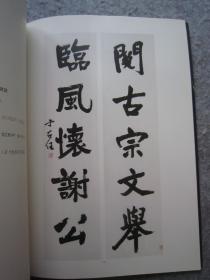 閱古宗文舉
臨風懷謝公
于右任